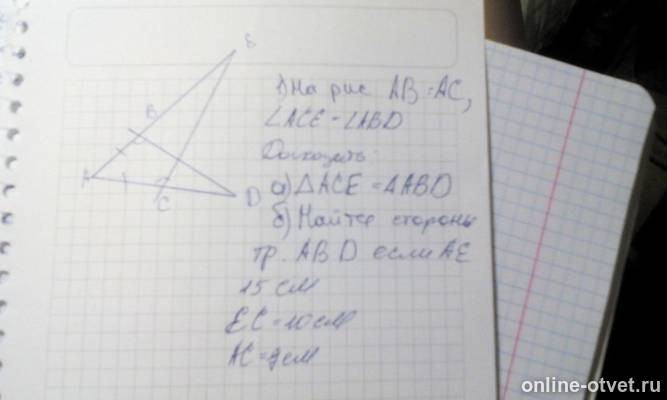 Б
В
А
С
D
1) На рис AB = AC,
∠ACE = ∠ABD
Доказать:
а) △ACE = △ABD
б) Найти стороны
тр. ABD если AE
15 см
EC = 10 см
AC = 7 см
online-otvet.ru